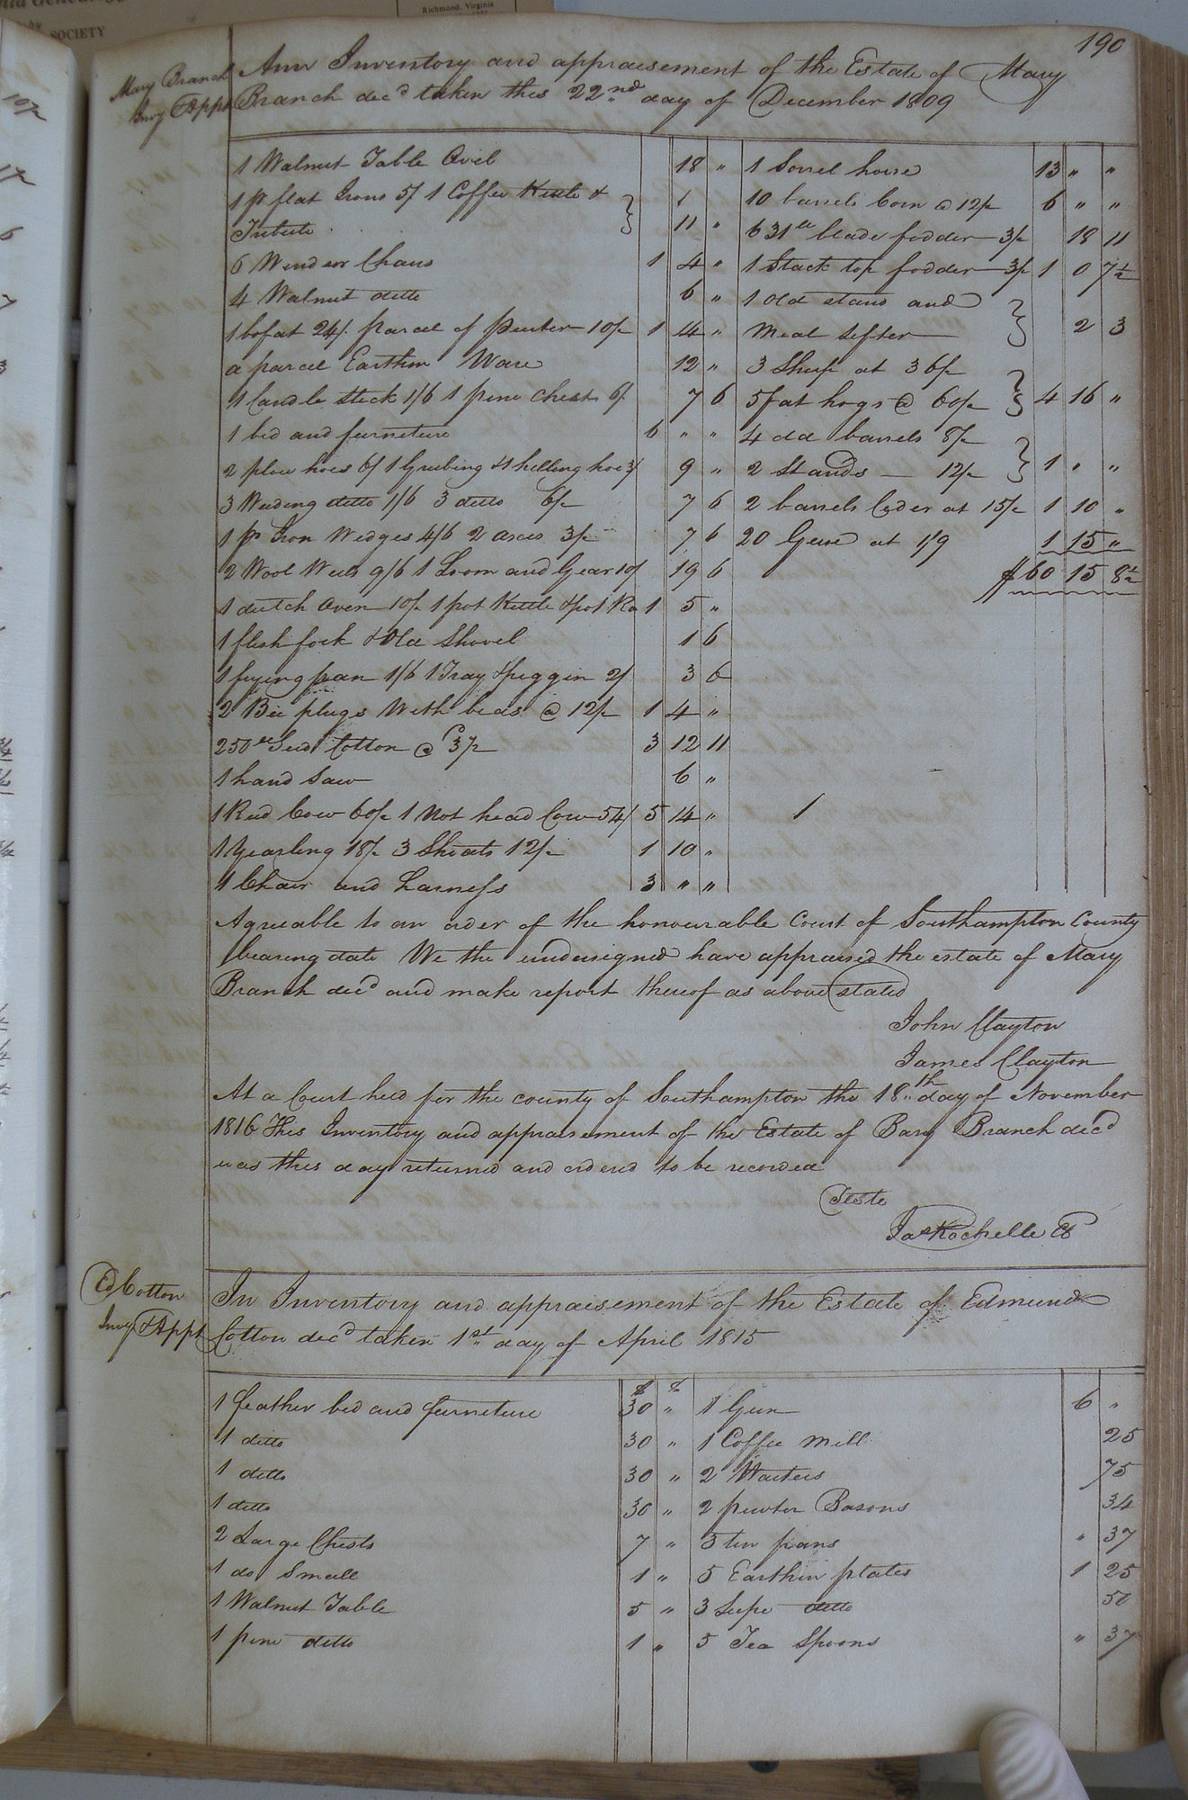 SOCIETY
Richmond, Virginia
190
Mary Branch
Invy & Appt
Ann Inventory and appraisement of the Estate of Mary
Branch decd taken this 22nd day of December 1809
1 Walnut Table Ovil 18 "
1 pr flat Irons 5/ 1 Coffee Kettle &
11 "
6 Windsor Chairs 1 4 "
4 Walnut ditto 6 "
1 bofat 24/. parcel of pewter 10/ 1 4 "
a parcel Earthin Ware 12 "
1 Candle stick 1/6 1 pine chest 6/ 7 6
1 bed and furniture 6 " "
2 plow hoes 6/ 1 Grubing & 1 hilling hoe 3/ 9 "
3 Weeding ditto 1/6 3 ditto 6/ 7 6
1 pr Iron Wedges 4/6 2 axes 3/ 7 6
2 Wool Weels 9/6 1 Loom and Gear 10/ 19 6
1 dutch Oven 10/ 1 pot Kettle & pot 1 5 "
1 flesh fork & Old Shovel 1 6
1 frying pan 1/6 1 Tray & piggin 2/ 3 6
2 Bee plugs With bees @ 12/ 1 4 "
250 Seed Cotton @ 3 12 11
1 hand Saw 6 "
1 Red Cow 60/ 1 Not head Cow 54/ 5 14 "
1 Yearling 18/ 3 Shoats 12/ 1 10 "
1 Chair and Harness 3 " "
1 Sorrel horse 13 " "
10 barrels Corn @ 12/ 6 " "
631 blade fodder 3/ 18 11
1 Stack top fodder 3/ 1 0 7½
1 Old stand and
Meal Sifter 2 3
3 Sheep at 36/
5 fat hogs @ 60/ 4 16 "
4 old barrels 8/
2 Stands 12/ 1 " "
2 barrels Cider at 15/ 1 10 "
20 Geese at 1/9 1 15 "
£60 15 8½
Agreable to an order of the honourable Court of Southampton County
bearing date We the undersigned have appraised the estate of Mary
Branch decd and make report thereof as above stated
John Clayton
James Clayton
At a Court held for the county of Southampton the 18th day of November
1816 This Inventory and appraisement of the Estate of Bary Branch decd
was this day returned and ordered to be recorded
Teste
Jas Rochelle CC
Ed Cotton
Invy & Appt
In Inventory and appraisement of the Estate of Edmund
Cotton decd taken 1st day of April 1815
1 feather bed and furniture 30 "
1 ditto 30 "
1 ditto 30 "
1 ditto 30 "
2 Large Chests 7 "
1 do Small 1 "
1 Walnut Table 5 "
1 pine ditto 1 "
1 Gun 6 "
1 Coffee Mill 25
2 Waiters 75
2 pewter Basons 34
3 tin pans " 37
5 Earthin plates 1 25
3 Supe ditto 50
5 Tea Spoons " 37